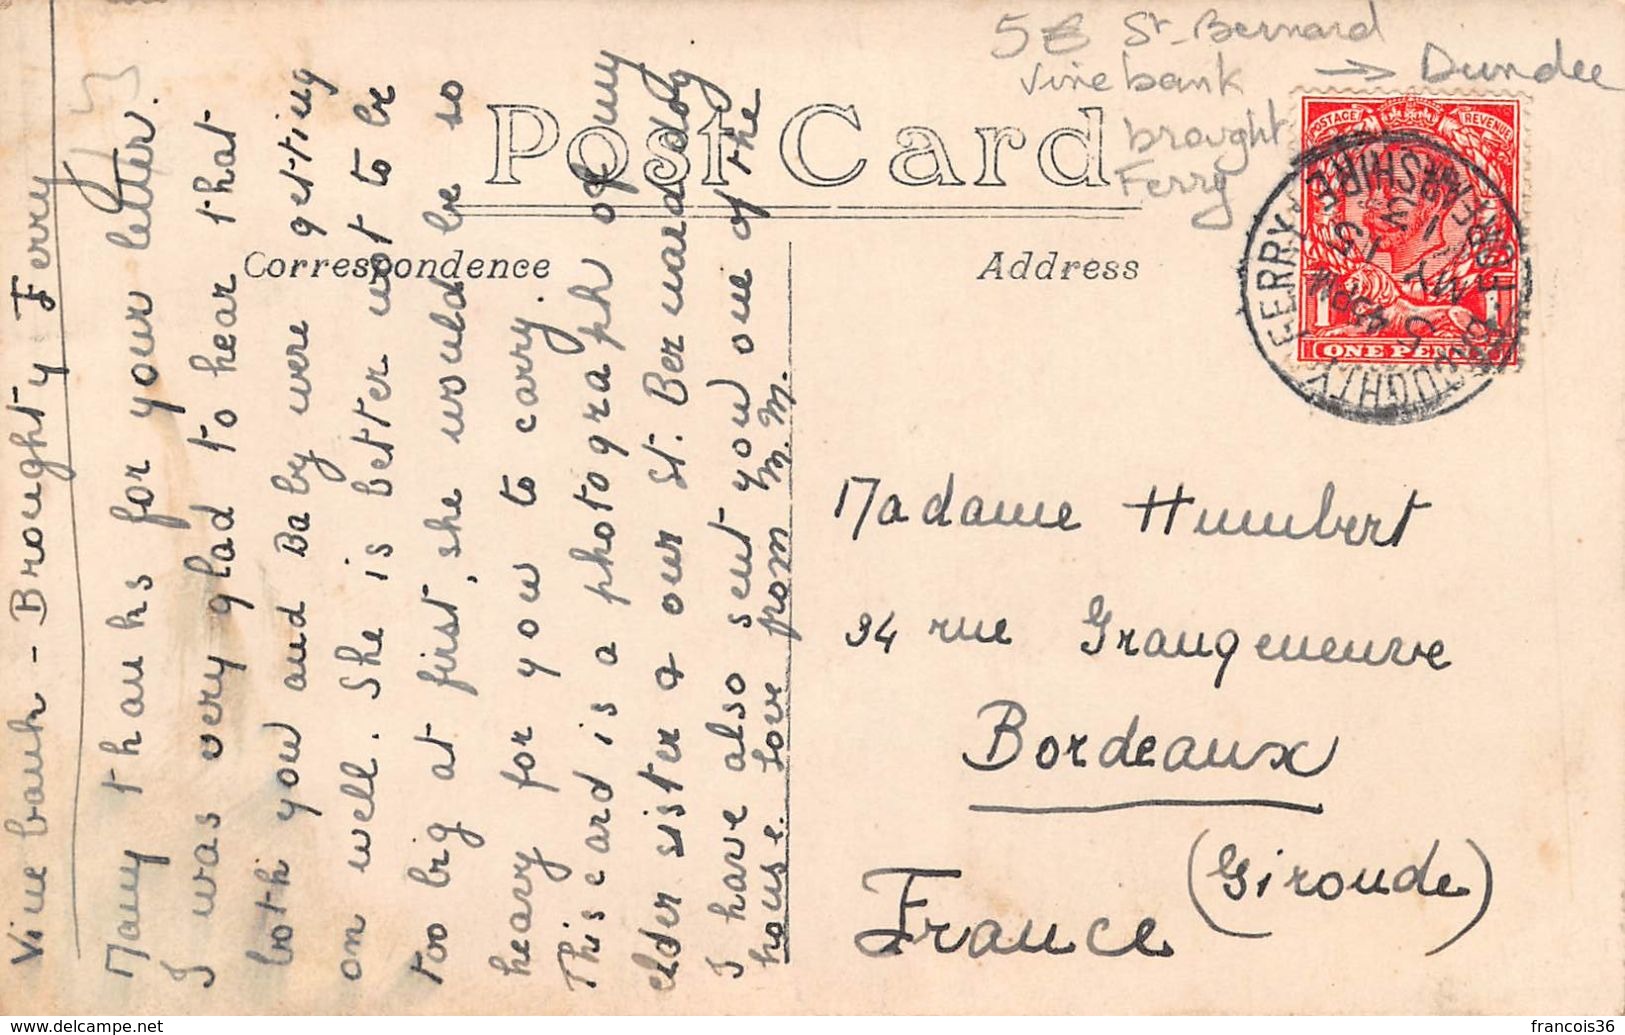 Vine bank - Broughty Ferry
Many thanks for your letter.
I was very glad to hear that
both you and Baby were getting
on well. She is better not to be
too big at first, she would be so
heavy for you to carry.
This card is a photograph of my
elder sister & our St. Bernard dog
I have also sent you one of the
house. Love from M.M.
Post Card
Correspondence
Address
5€ St-Bernard
Vine bank → Dundee
brought
Ferry
POSTAGE REVENUE
1 1
ONE PENNY
BROUGHTY-FERRY
FORFARSHIRE
4 45 PM
5 MY
13
Madame Humbert
34 rue Grangeneuve
Bordeaux
(Gironde)
France
delcampe.net
francois36